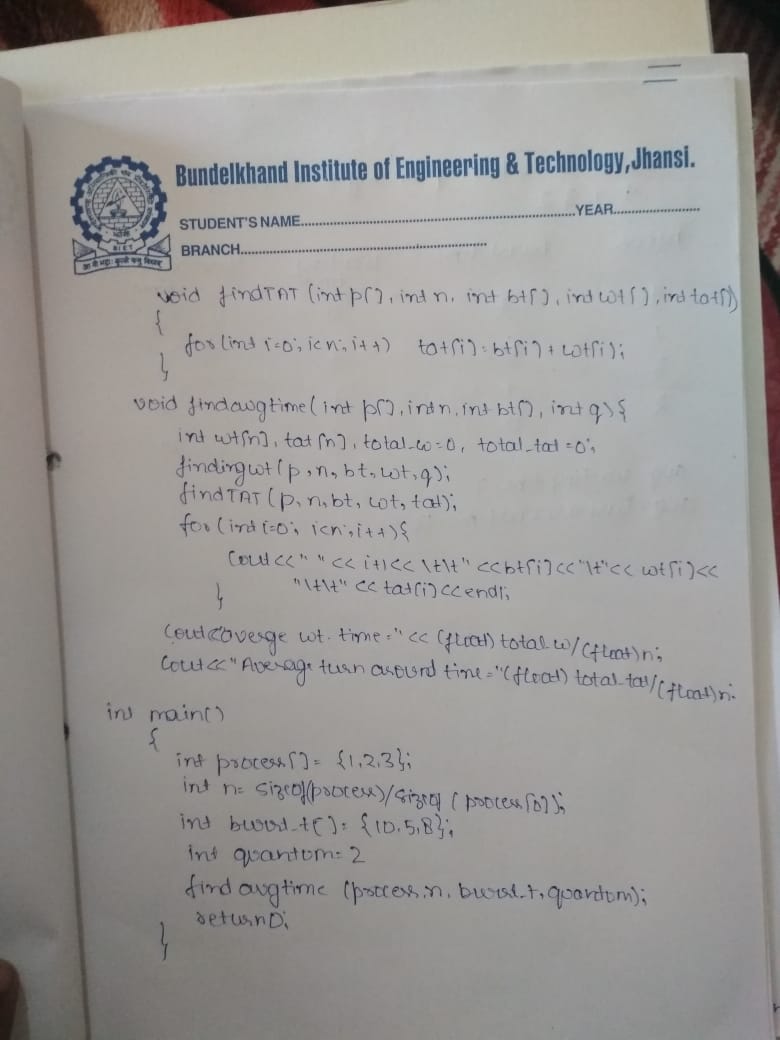 Bundelkhand Institute of Engineering & Technology, Jhansi.
STUDENT'S NAME..........YEAR..........
BRANCH..........
BIET
void findTAT (int p[], int n, int bt[], int wt[], int tat[])
{
for (int i=0; i<n; i++) tat[i] = bt[i] + wt[i];
}
void findavgtime( int p[], int n, int bt[], int q) {
int wt[n], tat[n], total_w=0, total_tat=0;
findingwt (p, n, bt, wt, q);
findTAT (p, n, bt, wt, tat);
for (int i=0; i<n; i++) {
Cout<< " " << i+1<< \t\t" <<bt[i]<< "\t"<< wt[i]<<
"\t\t" << tat[i]<<endl;
}
Cout<<averge wt. time =" << (float) total_w/(float)n;
Cout<< "Average turn around time ="(float) total_tat/(float)n;
int main()
{
int process[] = {1,2,3};
int n= sizeof(process)/sizeof (process[0]);
int burst_t[]= {10,5,8};
int quantom= 2
findavgtime (process, n, burst_t, quantom);
return 0;
}